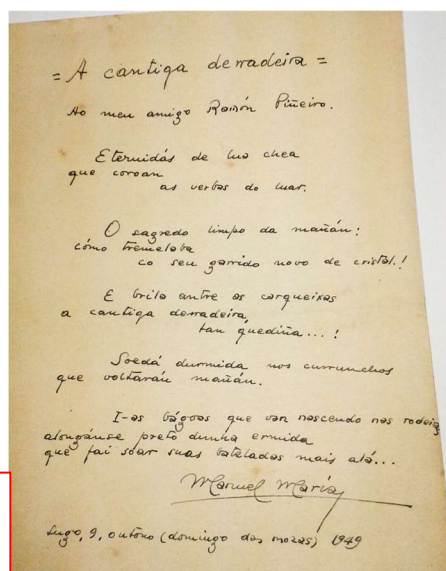 = A cantiga derradeira =
Ao meu amigo Ramón Piñeiro.
Eternidás de lua chea
que coroan
as verbas do luar.
O sagredo limpo da mañán:
cómo tremelaba
co seu garrido novo de cristal.!
E brila antre as carqueixas
a cantiga derradeira,
tan quediña...!
Soedá durmida nos currunchos
que voltarán mañán.
I-as bágoas que van nascendo nas rodeiras
alongánse preto dunha ermida
que fai soar suas bateladas mais alá...
Manuel María
Lugo, 9, outono (domingo das mozas) 1949